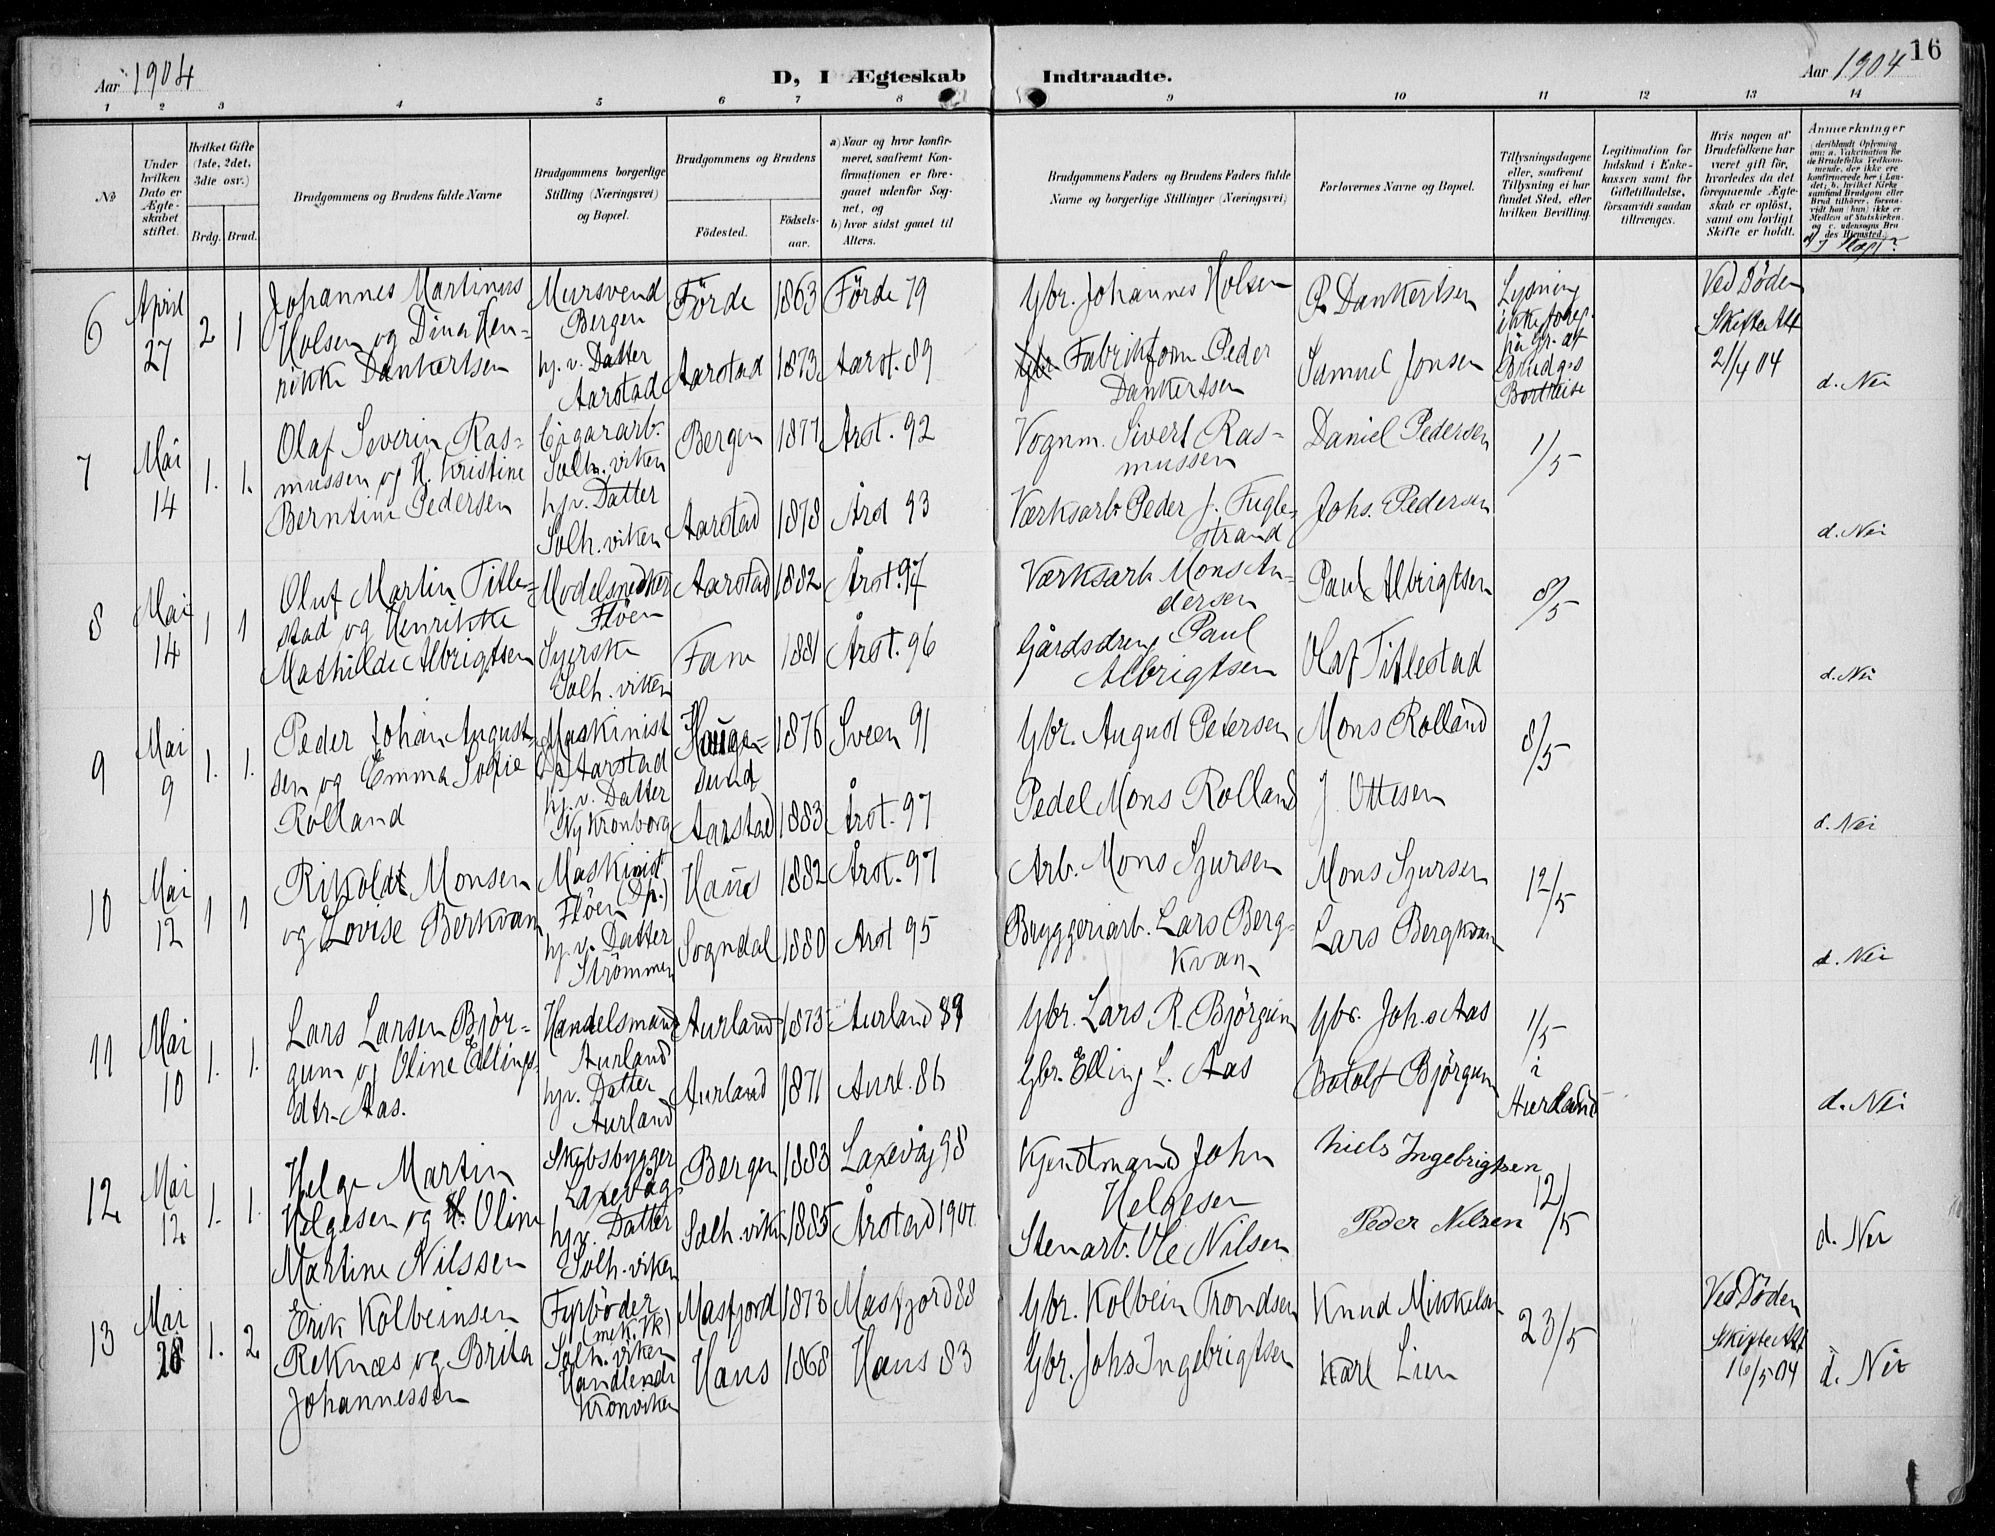 Aar 1904
D, I Ægteskab
Indtraadte.
Aar 1904
16
1 2 3 4 5 6 7 8 9 10 11 12 13 14
No
Under hvilken Dato er Ægteskabet stiftet.
Hvilket Gifte (1ste, 2det, 3die osv.)
Brdg. Brud.
Brudgommens og Brudens fulde Navne
Brudgommens borgerlige Stilling (Næringsvei) og Bopæl.
Brudgommens og Brudens
Fødested.
Fødselsaar.
a) Naar og hvor konfirmeret, saafremt Konfirmationen er foregaaet udenfor Sognet, og
b) hvor sidst gaaet til Alters.
Brudgommens Faders og Brudens Faders fulde Navne og borgerlige Stillinger (Næringsvei)
Forlovernes Navne og Bopæl.
Tillysningsdagene eller, saafremt Tillysning ei har fundet Sted, efter hvilken Bevilling.
Legitimation for Indskud i Enkekassen samt for Giftetilladelse, forsaavidt saadan tiltrænges.
Hvis nogen af Brudefolkene har været gift før, hvorledes da det foregaaende Ægteskab er opløst, samt om lovligt Skifte er holdt.
Anmerkninger (deriblandt Oplysning om: a. Vakcination for de Brudefolks Vedkommende, der ikke ere konfirmerede her i Landet; b. hvilket Kirkesamfund Brudgom eller Brud tilhører, forsaavidt han (hun) ikke er Medlem af Statskirken, og c. udensogns Brudes Hjemsted.)
6
April
27
2 1
Johannes Martinus
Holsen og Dina Hen-
rikke Dankertsen
Mursvend
Bergen
hj. v. Datter
Aarstad
Förde 1863 Förde 79
Aarstad 1873 Aarst. 89
Gbr. Johannes Holsen
Fabrikform Peder
Dankertsen
P. Dankertsen
Samuel Jonsen
Lysning
ikke foreg.
på gr. af
Brudg.s
Bortreise
Ved Døden
Skifte Att
21/4 04
d. Nei
7
Mai
14
1. 1.
Olaf Severin Ras-
mussen og H. Kristine
Berntine Pedersen
Cigararb.
Solh. viken
hjv. Datter
Solh. viken
Bergen 1877 Arst. 92
Aarstad 1878 Årst 93
Vognm. Sivert Ras-
mussen
Værksarb Peder J. Fugle-
strand
Daniel Pedersen
Johs. Pedersen
1/5
d. Nei
8
Mai
14
1 1
Oluf Martin Title-
stad og Henrikke
Mathilde Albrigtsen
Modelsnedker
Fløen
Syerske
Solh. viken
Aarstad 1882 Årst. 97
Fane 1881 Årst. 96
Værksarb Mons An-
dersen
Gårdsdreng Paul
Albrigtsen
Paul Albrigtsen
Olaf Titlestad
8/5
d. Nei
9
Mai
9
1. 1.
Peder Johan August-
sen og Emma Sofie
Rolland
Maskinist
Aarstad
hj. v. Datter
Ny Kronborg
Hauge-
sund 1876 Sveen 91
Aarstad 1883 Årst. 97
Gbr. August Petersen
Pedel Mons Rolland
Mons Rolland
J. Ottesen
8/5
d. Nei
10
Mai
12
1 1
Rikoldt Monsen
og Lovise Berkvam
Maskinist
Fløen (Dp.)
hj. v. Datter
Strømmen
Haus 1882 Årst. 97
Sogndal 1880 Årst 95
Arb. Mons Sjursen
Bryggeriarb. Lars Berg-
kvam
Mons Sjursen
Lars Bergkvam
12/5
d. Nei
11
Mai
10
1. 1.
Lars Larsen Bjør-
gum og Oline Ellings-
dtr. Aas.
Handelsmand
Aurland
hjv. Datter
Aurland
Aurland 1873 Aurland 89
Aurland 1871 Aurl. 86
Gbr. Lars R. Bjørgum
Gbr. Elling L. Aas
Gbr. Johs Aas
Botolf Bjørgum
1/5
i
Aurland
d. Nei
12
Mai
12
1. 1.
Helge Martin
Helgesen og Oline
Martine Nilssen
Skibsbygger
Laxevåg
hjv. Datter
Solh. viken
Bergen 1883 Laxevåg 98
Solh. viken 1885 Årstad 1901
Kjendtmand John
Helgesen
Stenarb. Ole Nilsen
Niels Ingebrigtsen
Peder Nilsen
12/5
d. Nei
13
Mai
28
1. 2
Erik Kolbeinsen
Reknæs og Brita
Johannessen
Fyrbøder
(mek. Vk)
Solh. viken
Handlende
Kronviken
Masfjord 1873 Masfjord 88
Haus 1868 Haus 83
Gbr. Kolbein Trondsen
Gbr. Johs Ingebrigtsen
Knud Mikkelsen
Karl Lien
23/5
Ved Døden
Skifte Att
16/5 04
d. Nei